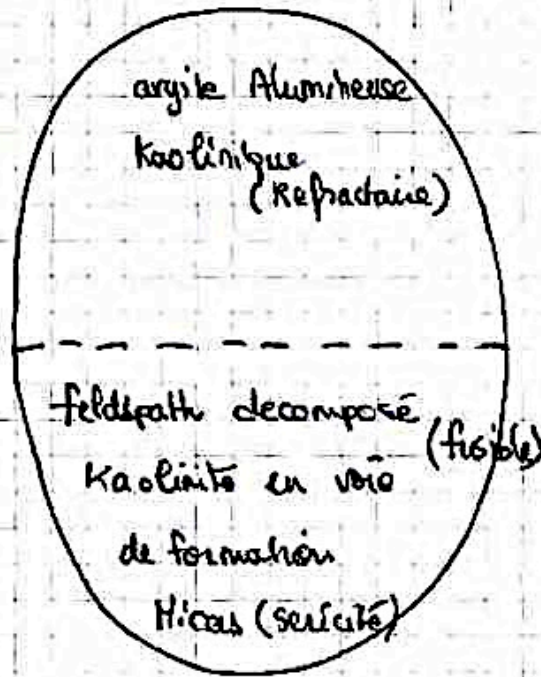 argile Alumineuse
Kaolinique
(Refractaire)
feldspath decomposé
(fusible)
Kaolinite en voie
de formation
Micas (sericite)